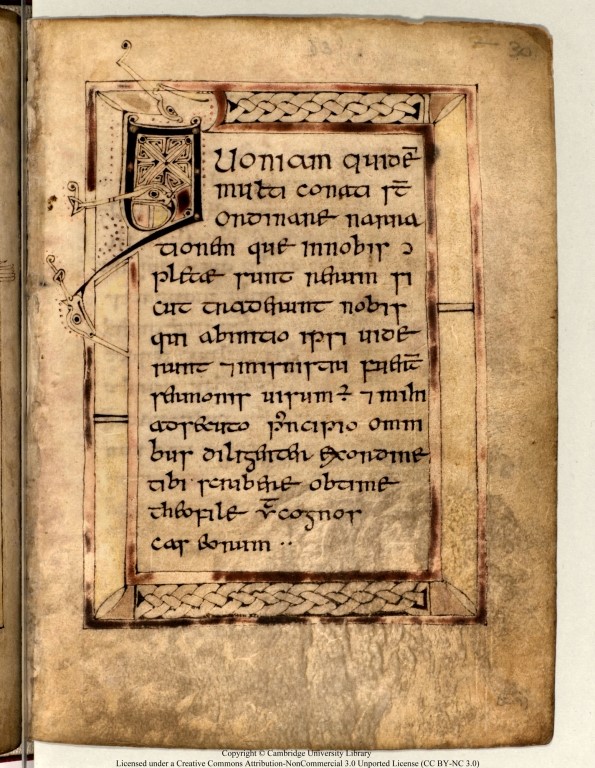 30
QUoniam quidē
multi conati st̄
ordinare narra
tionem que innobis ɔ
pletæ sunt rerum si
cut traderunt nobis
qui abinitio ipsi uide
runt ⁊ministri fuer̄t
sermonis uisum ÷ ⁊mihi
adsecuto principio omni
bus diligenter exordine
tibi scribere obtime
theofile v̄ cognos
cas eorum ..
Copyright © Cambridge University Library
Licensed under a Creative Commons Attribution-NonCommercial 3.0 Unported License (CC BY-NC 3.0)